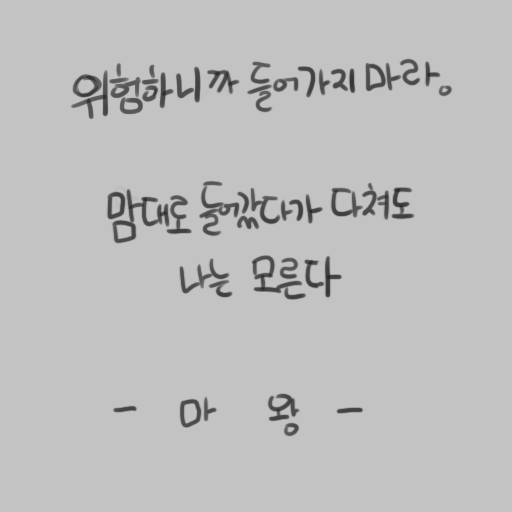 위험하니까 들어가지 마라.
맘대로 들어갔다가 다쳐도
나는 모른다
- 마 왕 -